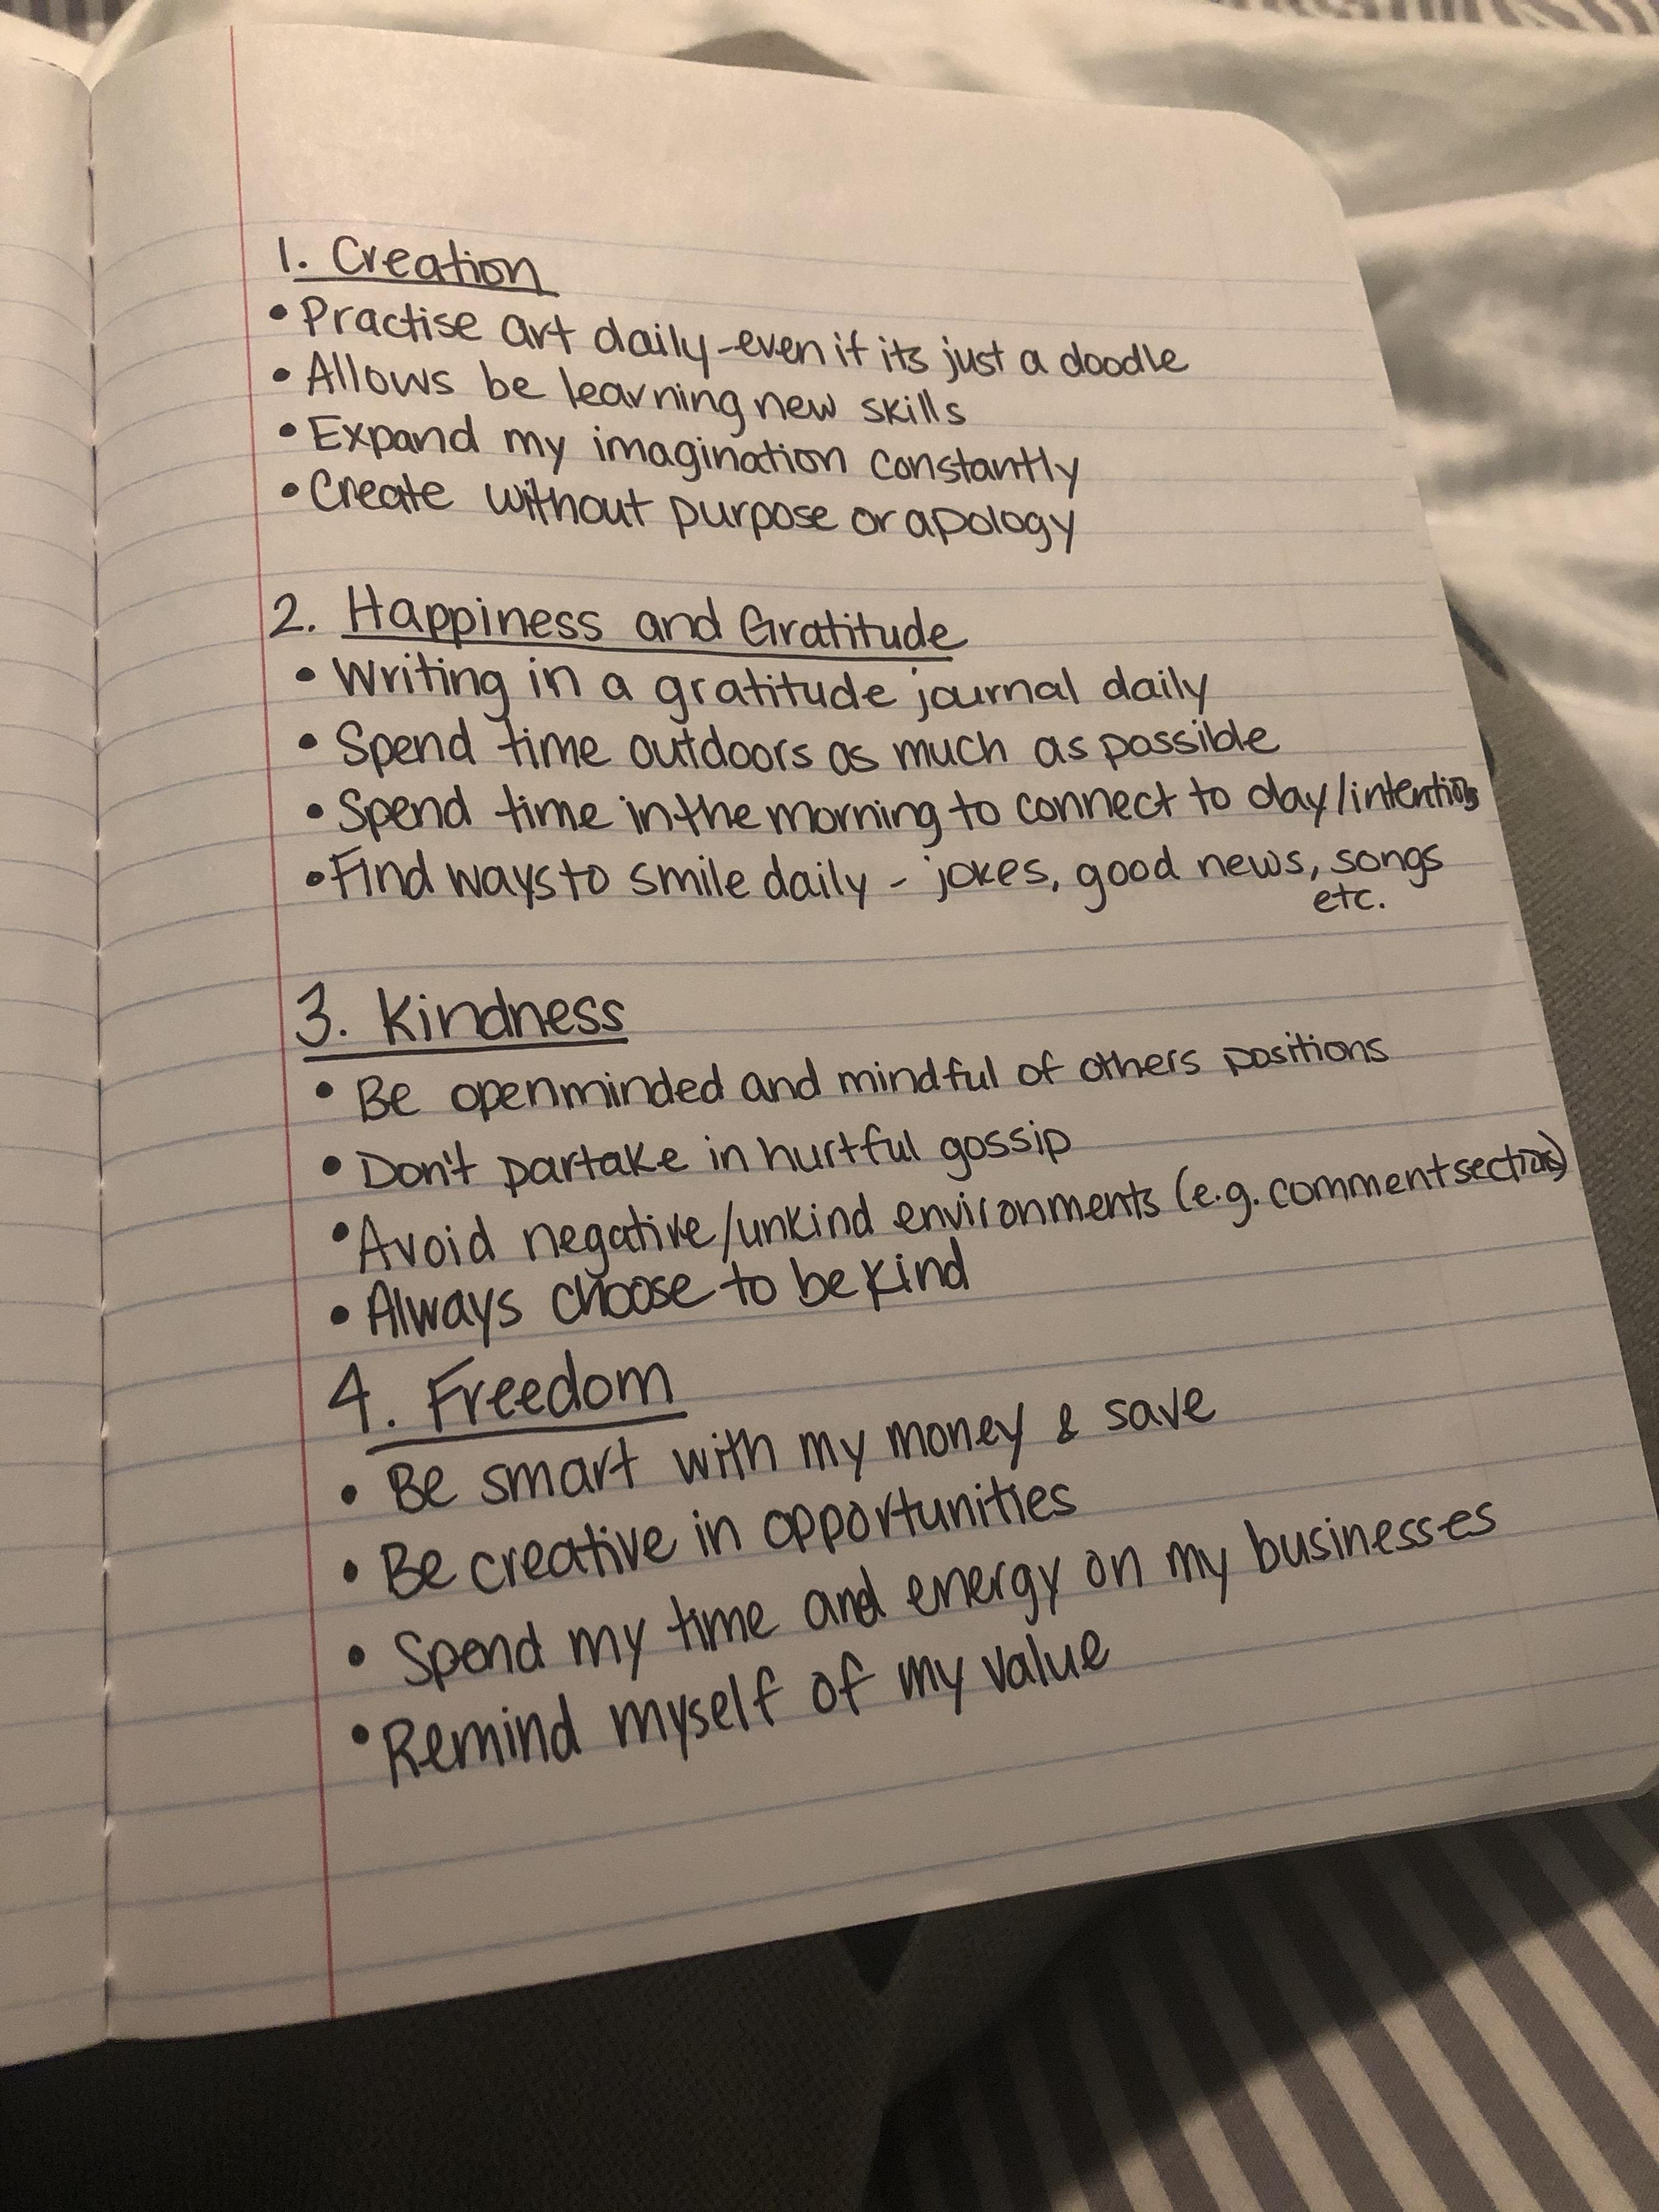 1. Creation
• Practise art daily - even if its just a doodle
• Allows be learning new skills
• Expand my imagination constantly
• Create without purpose or apology
2. Happiness and Gratitude
• Writing in a gratitude journal daily
• Spend time outdoors as much as possible
• Spend time in the morning to connect to day/intentions
• Find ways to smile daily - jokes, good news, songs
etc.
3. Kindness
• Be openminded and mindful of others positions
• Don't partake in hurtful gossip
• Avoid negative/unkind environments (e.g. comment sections)
• Always choose to be kind
4. Freedom
• Be smart with my money & save
• Be creative in opportunities
• Spend my time and energy on my businesses
• Remind myself of my value